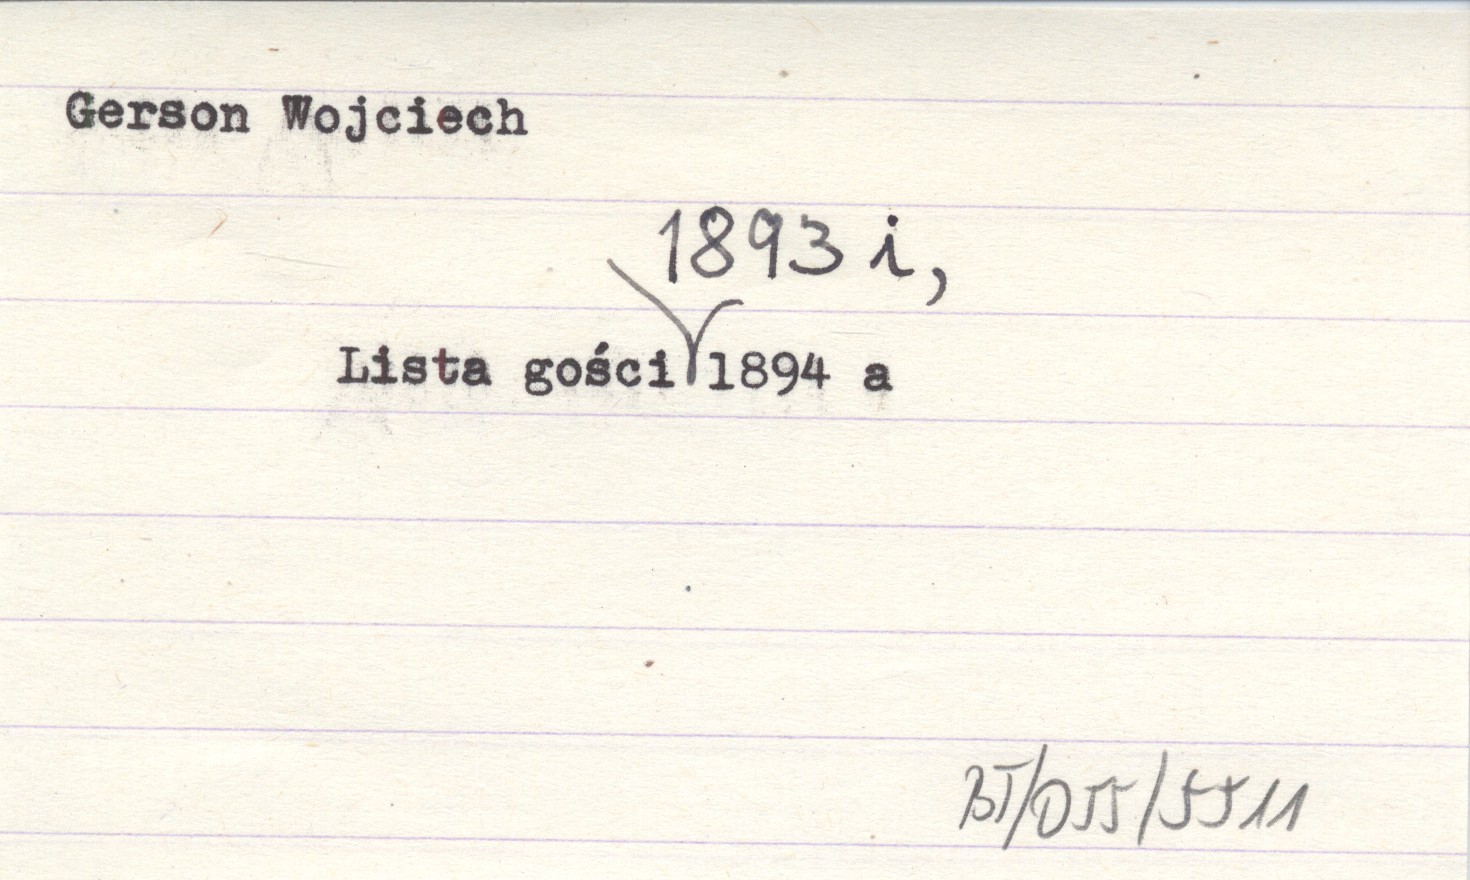 Gerson Wojciech
1893 i,
Lista gości 1894 a
BT/D55/5511